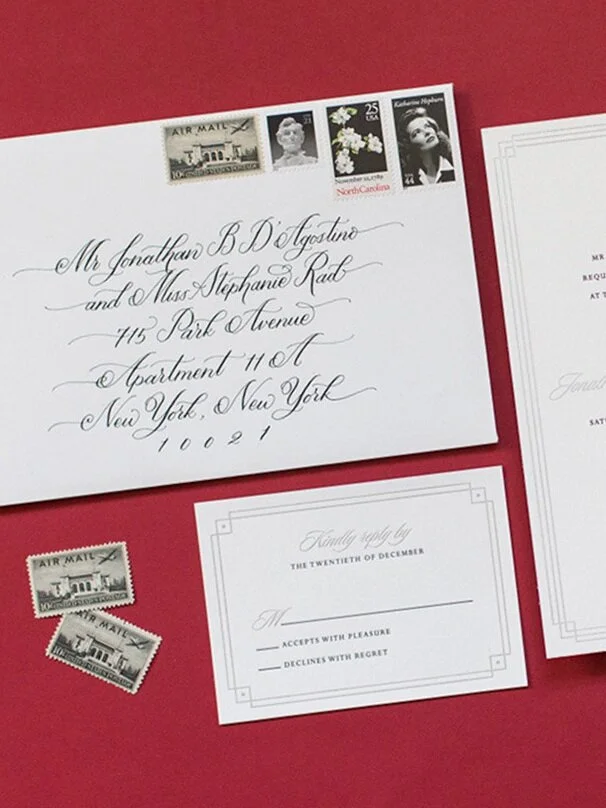 AIR MAIL
10¢ UNITED STATES POSTAGE
21
25
USA
November 21, 1789
North Carolina
Katharine Hepburn
USA
44
Mr Jonathan B D'Agostino
and Miss Stephanie Rad
715 Park Avenue
Apartment 11 A
New York, New York
10021
AIR MAIL
10¢ UNITED STATES POSTAGE
AIR MAIL
10¢ UNITED STATES POSTAGE
Kindly reply by
THE TWENTIETH OF DECEMBER
M
ACCEPTS WITH PLEASURE
DECLINES WITH REGRET
MR
REQU
AT T
Jonat
SATU